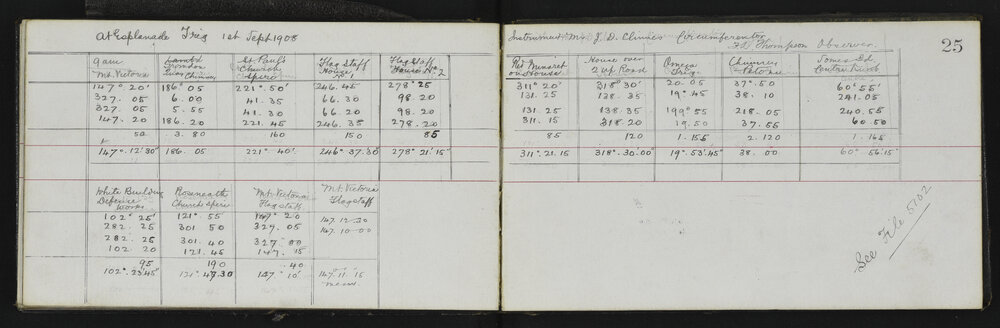 At Esplanade Trig 1st Sept 1908
9am
Mt. Victoria
Chimney
St. Paul's
Church
Spire
Flag Staff
House
No 1
Flag Staff
House No 2
147° 20' 186° 05 221° 50' 246. 45 278° 25
327. 05 6. 00 41. 35 66. 30 98. 20
327. 05 5. 55 41. 30 66. 20 98. 20
147. 20 186. 20 221. 45 246. 35 278. 20
50 3. 80 160 150 85
147°. 12'. 30" 186. 05 221° 40' 246° 37. 30" 278° 21' 15"
White Building
Defence
Works
Roseneath
Church Spire
Mt. Victoria
Flagstaff
Mt. Victoria
Flagstaff
102° 25' 121°. 55' 147° 20 147. 12. 30
282. 25 301 50 327. 05 147. 10. 00
282. 25 301. 40 327. 00
102. 20 121. 45 147. 15
95 190 40
102°. 23' 45" 121° 47. 30 147° 10' 147° 11' 15
mean
Instrument Mr. J. D. Climie's Circumferentor
Thompson Observer
25
House over
Road
Omega
Trig
Chimney
Somes Id
311° 20' 318° 30' 20° 05' 37°. 50 60° 55'
131. 25 138. 35 19°. 45 38. 10 241. 05
131. 25 138. 35 199° 55 218. 05 240. 55
311. 15 318. 20 19. 50 37. 55 60. 50
85 120 1. 155 2. 120 1. 165
311°. 21. 15 318°. 30. 00" 19°. 53'. 45" 38. 00 60° 56'. 15"
See File 5702